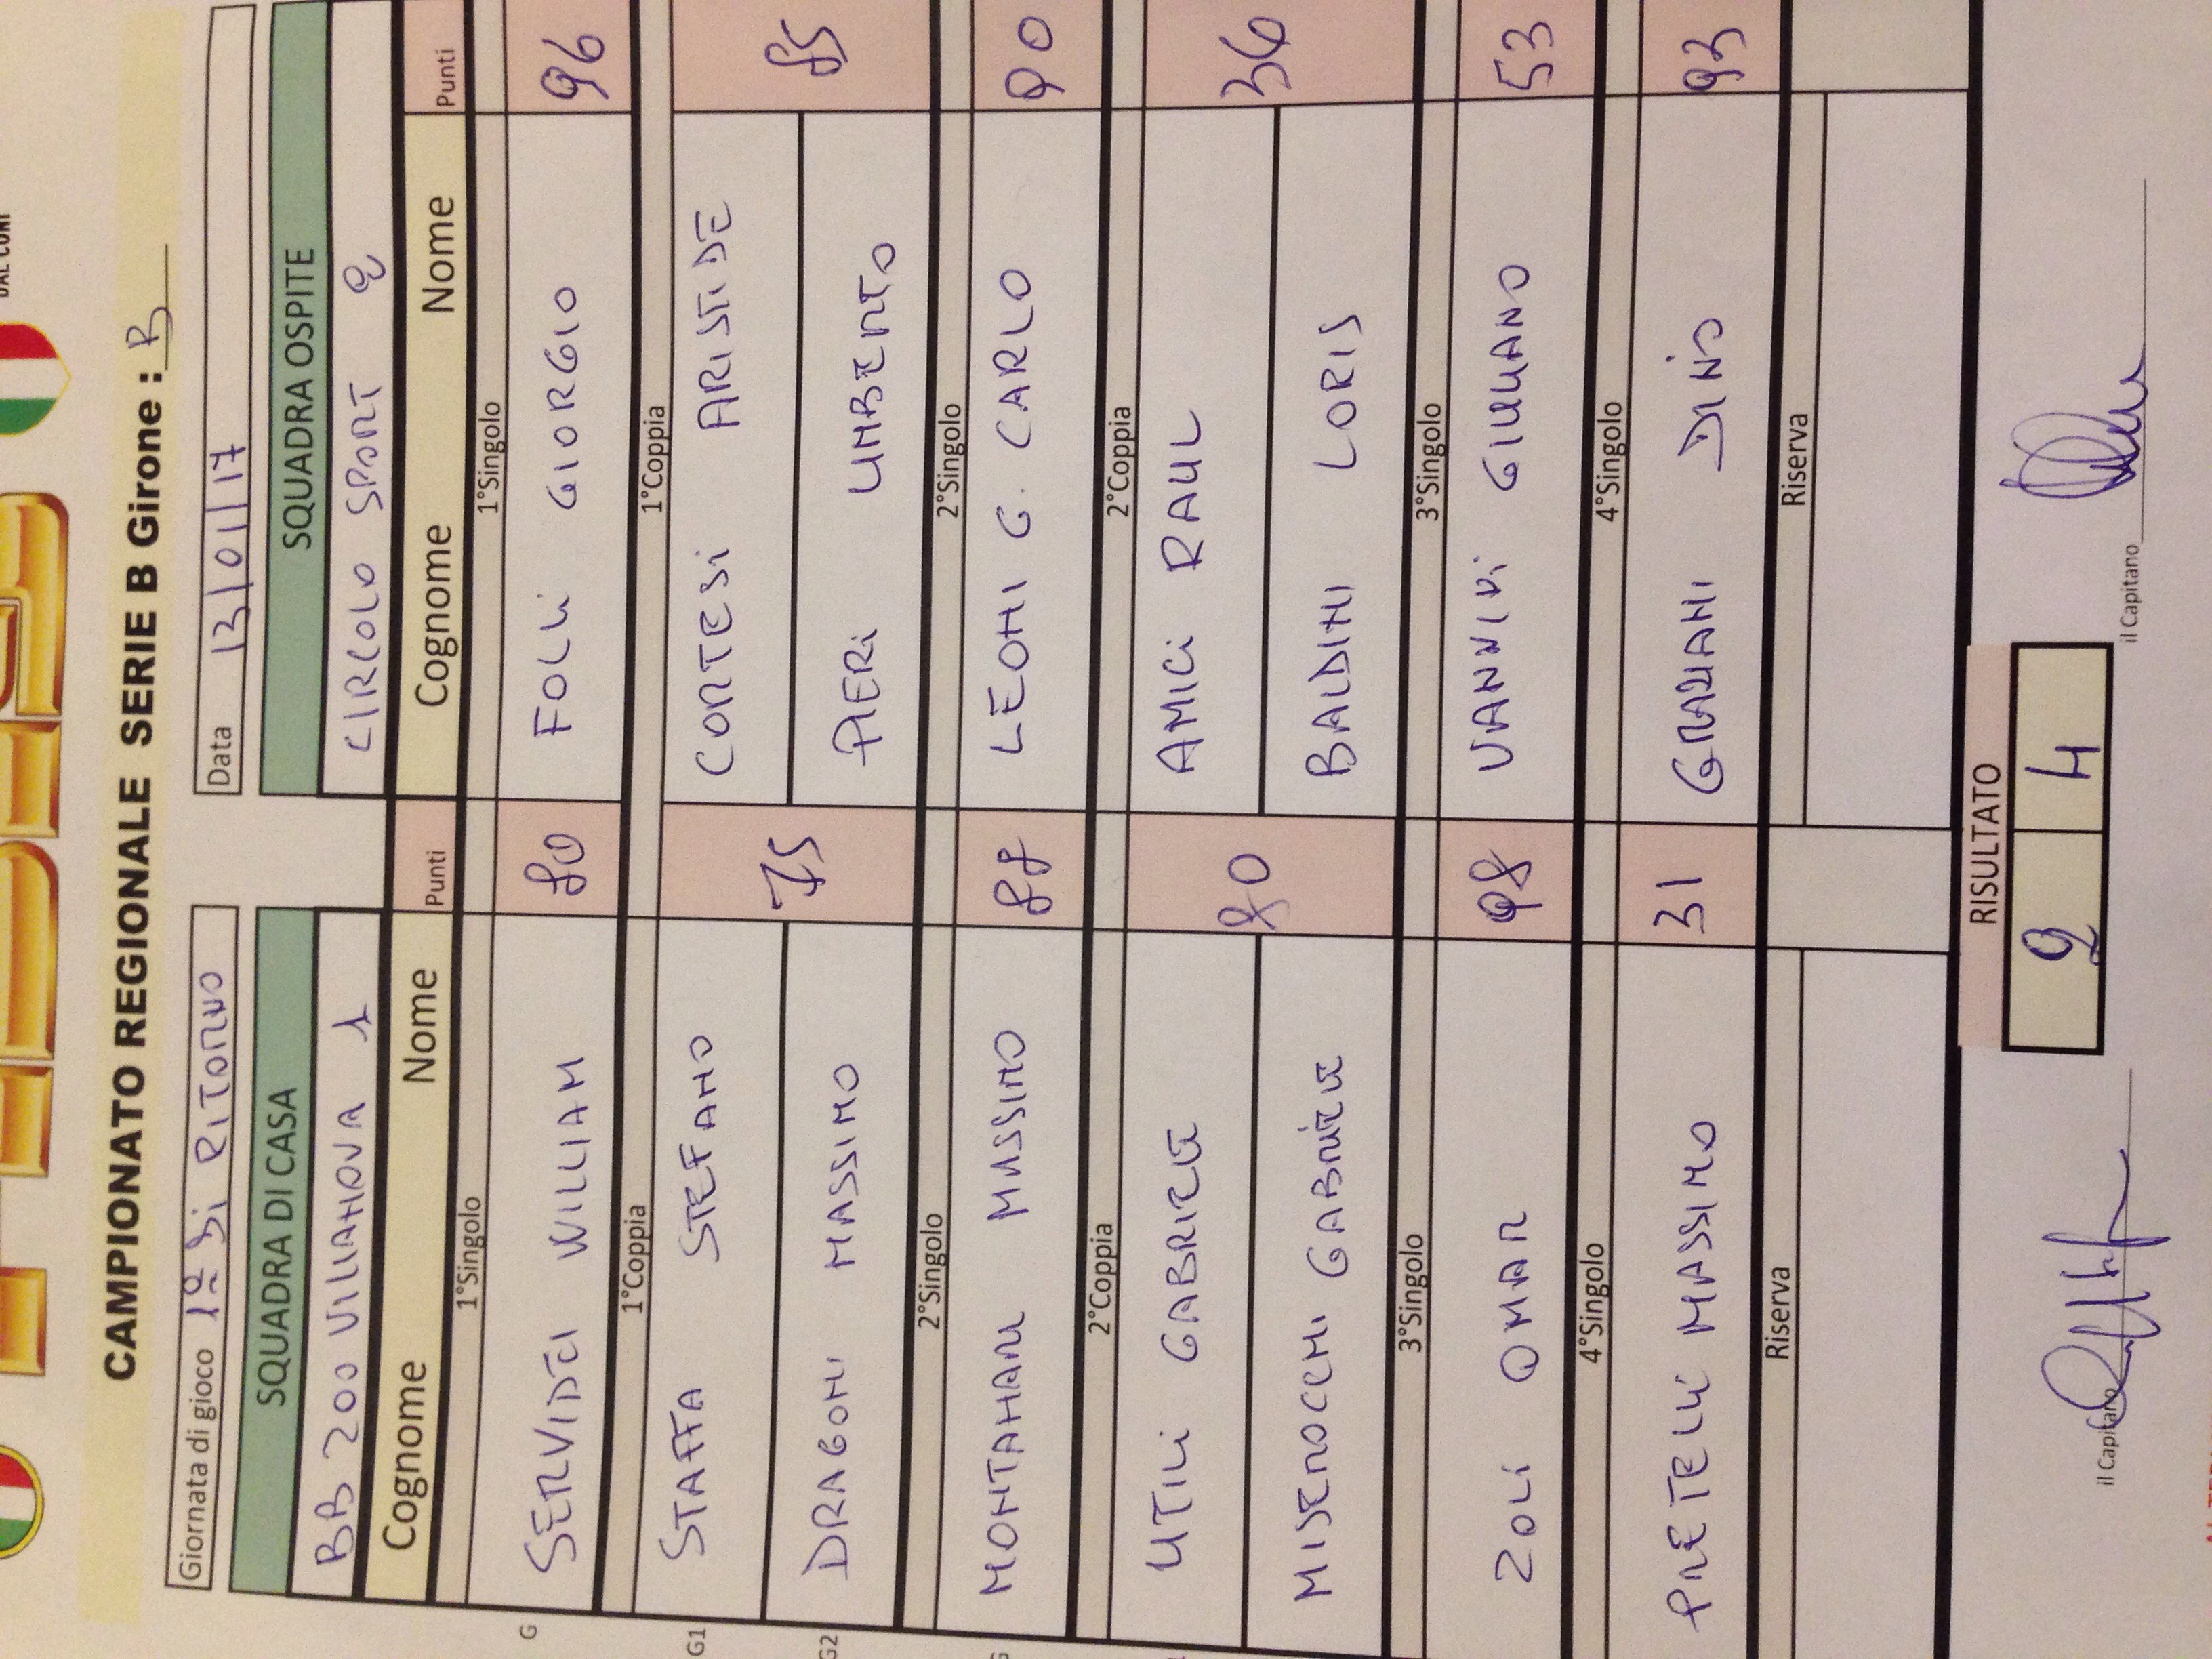 DAL CONI
CAMPIONATO REGIONALE SERIE B Girone : B
Giornata di gioco 1ª Di RITORNO Data 13/01/17
SQUADRA DI CASA SQUADRA OSPITE
BAR 200 VILLANOVA 1 CIRCOLO SPORT 2
Cognome Nome Punti Cognome Nome Punti
1°Singolo 1°Singolo
G SERVIDEI WILLIAM 80 FOLLi GIORGIO 96
1°Coppia 1°Coppia
G1 STAFFA STEFANO 75 CORTESi ARISTIDE 85
G2 DRAGONI MASSIMO PIERi UMBERTO
2°Singolo 2°Singolo
MONTANARI MASSIMO 88 LEONI G. CARLO 90
2°Coppia 2°Coppia
UTILi GABRIELE 80 AMICi RAUL 36
MISEROCCHI GABRIELE BALDINI LORIS
3°Singolo 3°Singolo
ZOLi OMAR 98 VANNINi GIULIANO 53
4°Singolo 4°Singolo
PRETELLi MASSIMO 31 GRAZIANI DINO 93
Riserva Riserva
RISULTATO
2 4
il Capitano il Capitano